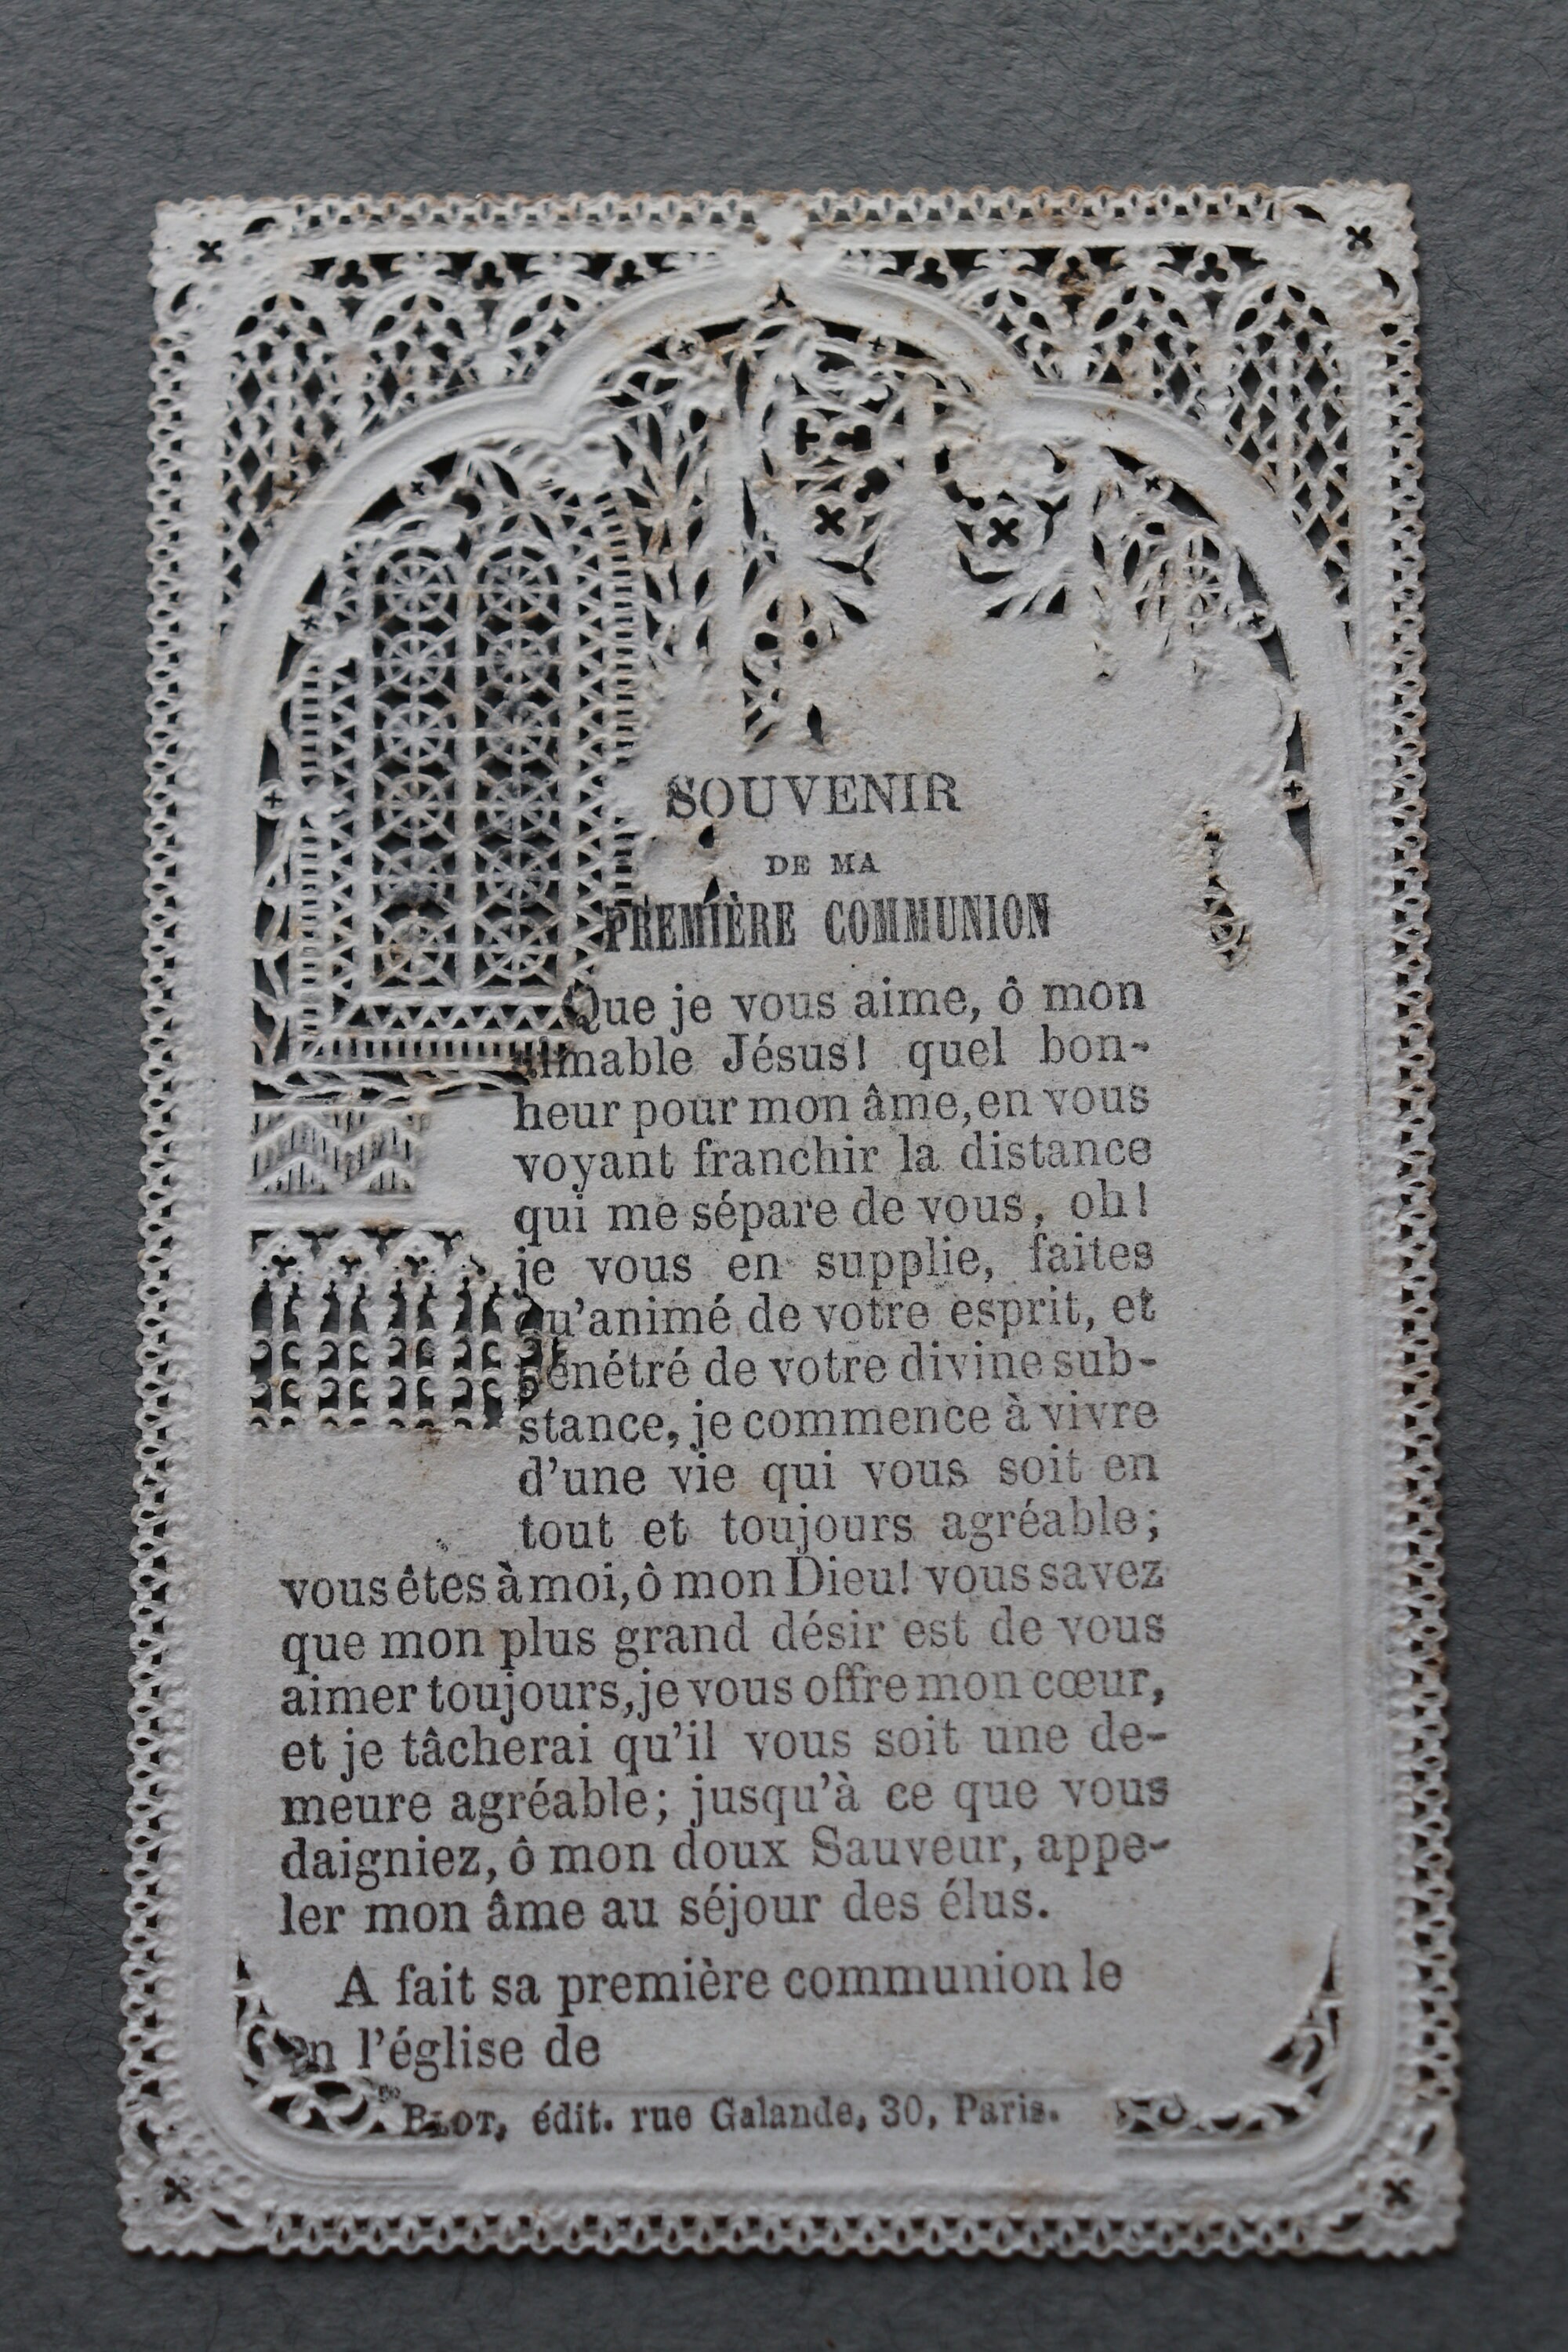 SOUVENIR
DE MA
PREMIÈRE COMMUNION
Que je vous aime, ô mon
aimable Jésus! quel bon-
heur pour mon âme, en vous
voyant franchir la distance
qui me sépare de vous, oh!
je vous en supplie, faites
qu'animé de votre esprit, et
pénétré de votre divine sub-
stance, je commence à vivre
d'une vie qui vous soit en
tout et toujours agréable;
vous êtes à moi, ô mon Dieu! vous savez
que mon plus grand désir est de vous
aimer toujours, je vous offre mon cœur,
et je tâcherai qu'il vous soit une de-
meure agréable; jusqu'à ce que vous
daigniez, ô mon doux Sauveur, appe-
ler mon âme au séjour des élus.
A fait sa première communion le
en l'église de
BLOT, édit. rue Galande, 30, Paris.